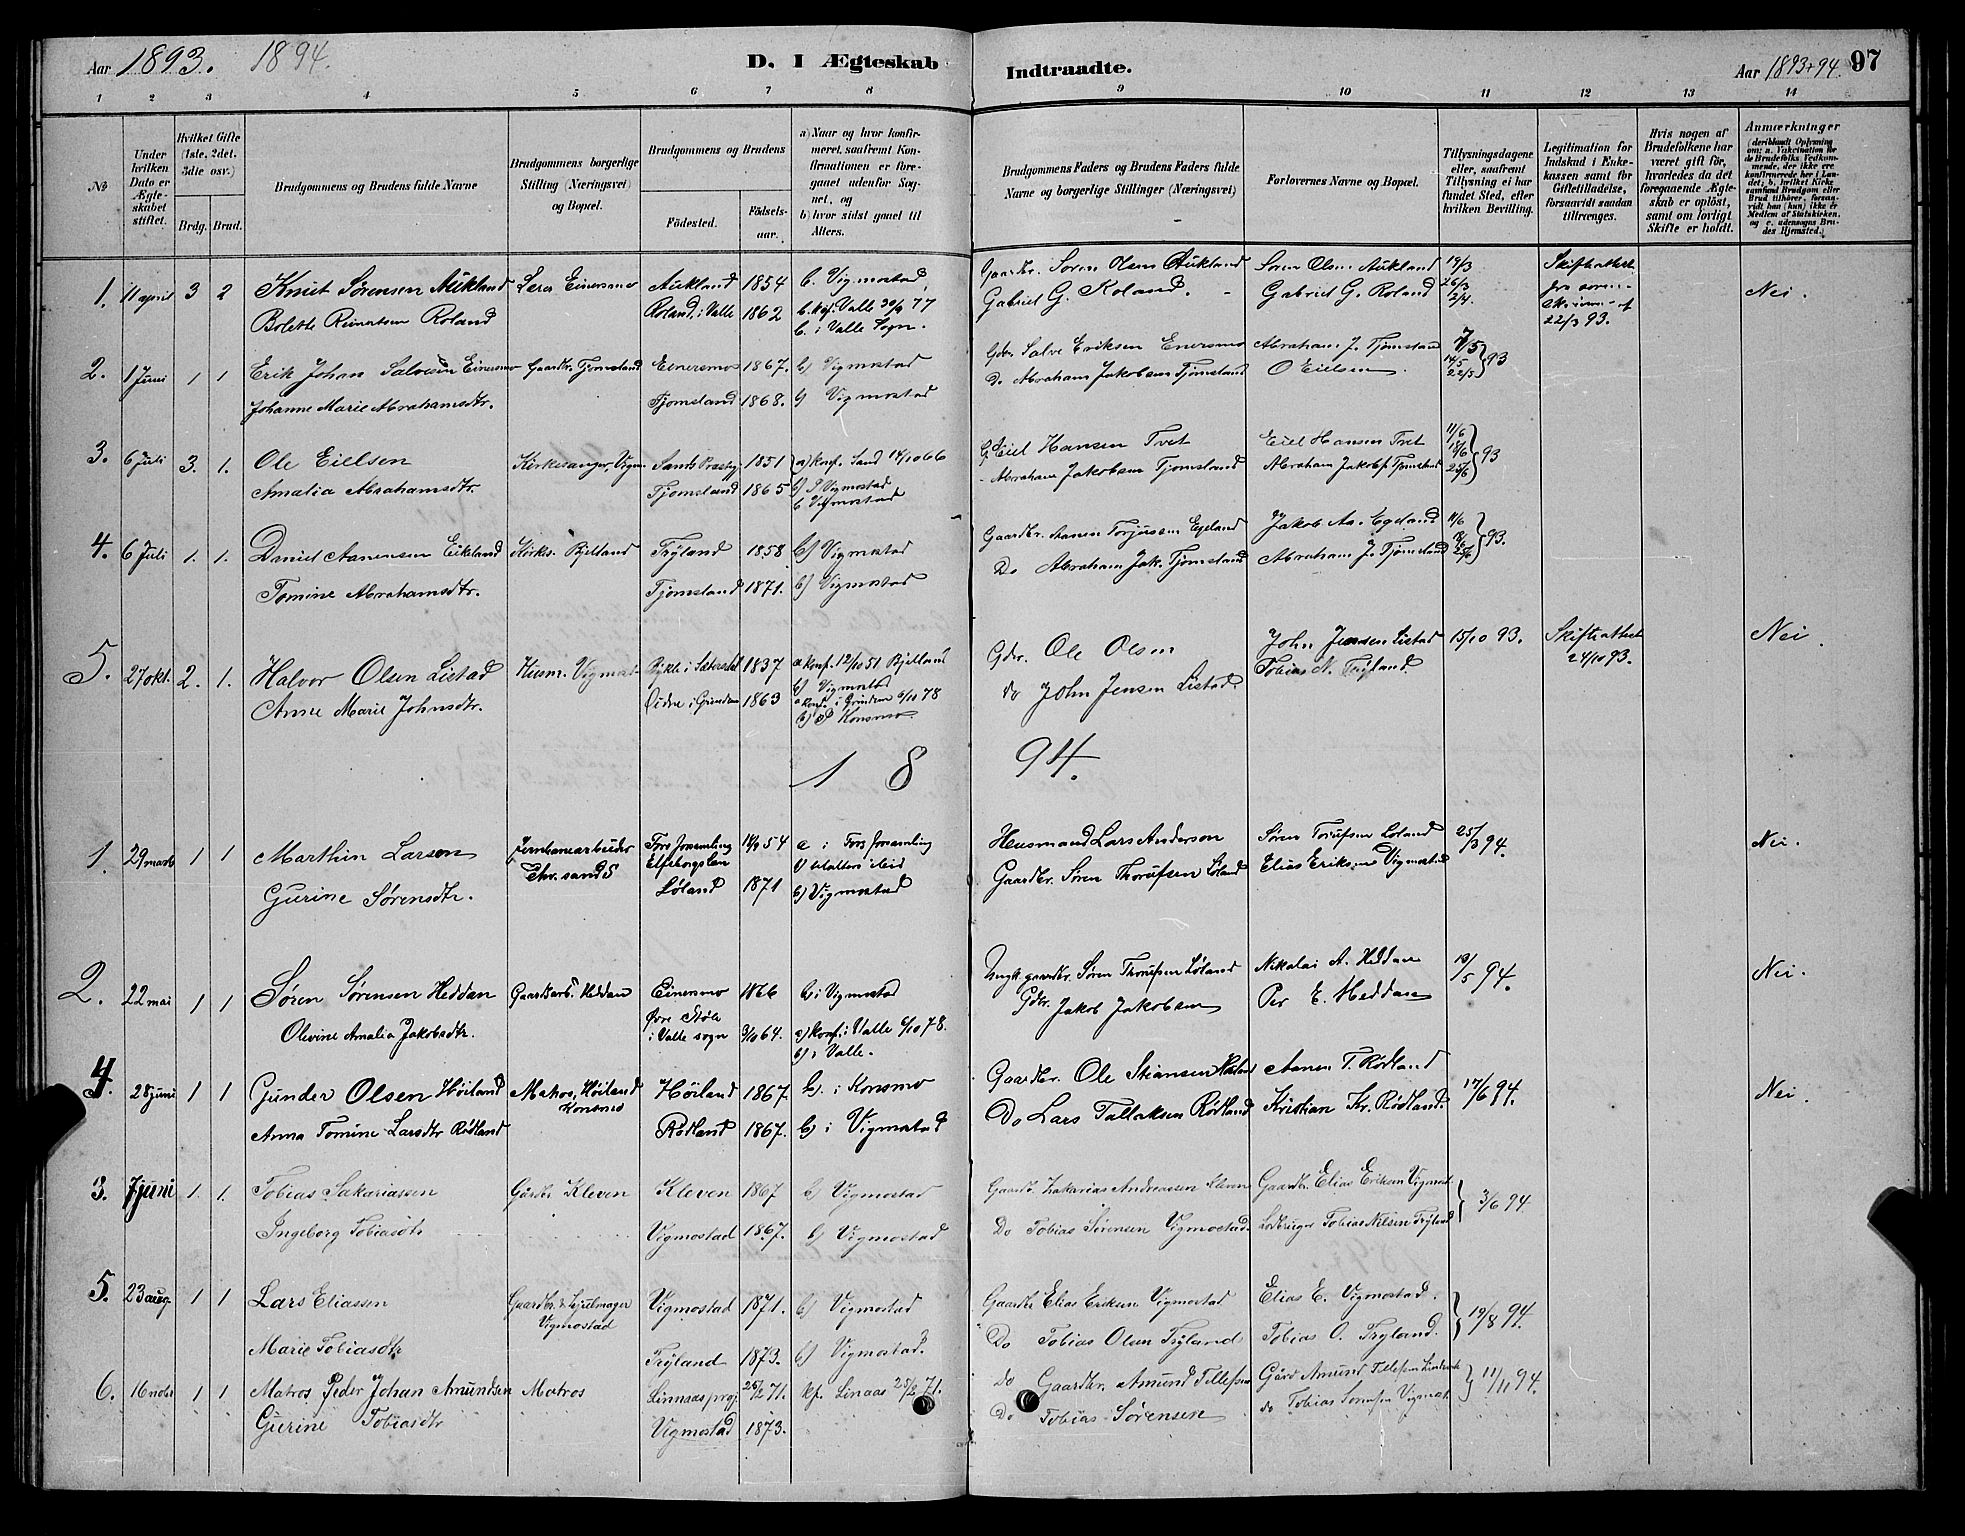 Aar 1893. 1894. D. I Ægteskab Indtraadte. Aar 1893+94. 97
1 2 3 4 5 6 7 8 9 10 11 12 13 14
No
Under hvilken Dato er Ægteskabet stiftet.
Hvilket Gifte (1ste, 2det, 3die osv.)
Brdg. Brud.
Brudgommens og Brudens fulde Navne
Brudgommens borgerlige Stilling (Næringsvei) og Bopæl.
Brudgommens og Brudens
Födested. Födselsaar.
a) Naar og hvor konfirmeret, saafremt Konfirmationen er foregaaet udenfor Sognet, og
b) hvor sidst gaaet til Alters.
Brudgommens Faders og Brudens Faders fulde Navne og borgerlige Stillinger (Næringsvei)
Forlovernes Navne og Bopæl.
Tillysningsdagene eller, saafremt Tillysning ei har fundet Sted, efter hvilken Bevilling.
Legitimation for Indskud i Enkekassen samt for Giftetilladelse, forsaavidt saadan tiltrænges.
Hvis nogen af Brudefolkene har været gift för, hvorledes da det foregaaende Ægteskab er oplöst, samt om lovligt Skifte er holdt.
Anmærkninger (deriblandt Oplysning om: a. Vakcination for de Brudefolks Vedkommende, der ikke ere konfirmerede her i Landet; b. hvilket Kirkesamfund Brudgom eller Brud tilhörer, forsaavidt han (hun) ikke er Medlem af Statskirken, og c. udensogns Brudes Hjemsted.)
1. 11 april 3 2 Knut Sörensen Aukland Lerer Einersmo Aukland 1854 b. Vigmostad Gaardbr. Soren Olsen Aukland Soren Olsen Aukland 19/3 Skifteattest
Bolette Reinertsen Roland Roland i Valle 1862 b. i Valle Sogn. Gabriel G. Roland. Gabriel G. Roland 26/3 2/4 22/3 93. Nei.
2. 1 Juni 1 1 Erik Johan Salvesen Einersmo Gaardbr. Tjomsland Einersmo 1867. b) Vigmostad Gbr. Salve Eriksen Enersmo Abraham J. Tjomsland 7/5
Johanne Marie Abrahamsdtr. Tjomsland 1868. b) Vigmostad Do Abraham Jakobsen Tjomsland O Eielsen. 14/5 22/5 } 93
3. 6 Juli 3. 1. Ole Eielsen Kirkesanger, Vigm Sands Præstg. 1851 a) Konf. Sand 14/10 66 G. Eiel Hansen Tvet Eiel Hansen Tvet 11/6 18/6
Amalia Abrahamsdtr. Tjomsland 1865 b) Vigmostad b Vigmostad Abraham Jakobsen Tjomsland Abraham Jakobs. Tjomsland 25/6 } 93
4. 6 Juli 1. 1. Daniel Aanensen Eikland Kirks. Bjelland Tryland 1858 b) Vigmostad Gaardbr. Aanen Torjussen Egeland Jakob Aa. Egeland 11/6
Tomine Abrahamsdtr. Tjomsland 1871. b) Vigmostad Do Abraham Jak. Tjomsland Abraham J. Tjomsland 18/6 25/6 } 93.
5. 27 okt. 2. 1. Halvor Olsen Listad Husm. Vigmost. Bykle i Sætersdal 1837 a Konf. 12/10 51 Bjelland b) Vigmostad Gbr. Ole Olsen John Jensen Listad 15/10 93. Skifteattest 24/10 93. Nei.
Anne Marie Johnsdtr. Oidne i Grindem 1863 a Konf. i Grindem 6/10 78 b) Konsmo. do John Jensen Listad. Tobias N. Tryland.
18 94.
1. 29 marts 1 1 Marthin Larsen Jernbanearbeider Chr.sands Fors forsamling Elfsborgs län 14/9 54 a i Fors forsamling Husmand Lars Anderson Sören Torufsen Loland 25/3 94. Nei.
Gurine Sørensdtr. Løland 1871 b) Vigmostad Gaardbr. Søren Thorufsen Loland Elias Eriksen Vigmostad
2. 22 mai 1 1 Søren Sørensen Heddan Gaardbars. Heddan Einersmo 1866 b i Vigmostad gaardbr. Søren Thorufsen Løland Nikolai A. Heddan 19/5 94. Nei.
Olevine Amalia Jakobsdtr. Øvre Støle i Valle sogn 9/10 64. a) Konf. i Valle 6/10 78. b) i Valle. Gbr. Jakob Jakobsen Per E. Heddan
4. 28 juni 1 1 Gunder Olsen Höiland Matros, Höiland Konsmo Höiland 1867. b). i Konsmo Gaardbr. Ole Stiansen Höiland Aanen T. Rödland 17/6 94. Nei.
Anna Tomine Larsdtr Rödland Rödland 1867. b) i Vigmostad Do Lars Tallaksen Rödland Kristian Kr. Rödland.
3. 7 juni 1. 1. Tobias Sakariassen Gårdbr Kleven Kleven 1867 b) Vigmostad Gaardb. Zakarias Andreassen Kleven Gaardbr. Elias Eriksen Vigmost.
Ingeborg Tobiasdtr Vigmostad 1867. b) Vigmostad Do Tobias Sørensen Vigmostad Tobias Nilsen Tryland } 3/6 94.
5. 23 aug. 1 1 Lars Eliassen Gaardbr. & Hjulmager Vigmostad Vigmostad 1871. b) Vigmostad Gaardbr Elias Eriksen Vigmostad Elias E. Vigmostad.
Marie Tobiasdtr Tryland 1873. b) Vigmostad. Do Tobias Olsen Tryland Tobias O. Tryland. } 19/8 94.
6. 16 nobr 1 1 Matros Peder Johan Amundsen Matros Linnaas prgj. 25/2 71. Kf. Linaas 25/2 71. Do Gaardbr. Amund Tellefsen Gård Amund Tellefsen
Gurine Tobiasdtr Vigmostad 1873. Do Tobias Sørensen do Tobias Sørensen Vigmost. } 11/11 94.